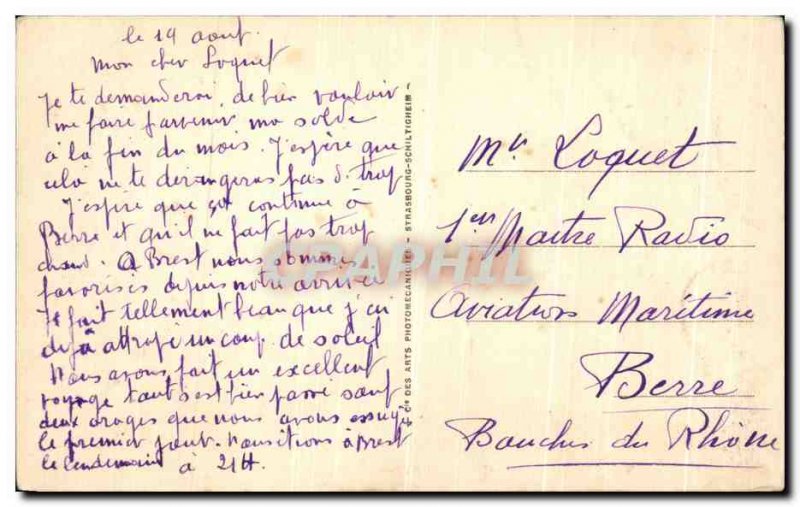 le 19 aout
Mon cher Loquet
Je te demanderai de bien vouloir
me faire parvenir ma solde
à la fin du mois. J'espère que
cela ne te dérangeras pas d. trop
J'espire que ça continue à
Berre et qu'il ne fait pas trop
chaud. A Brest nous sommes
favorisés depuis notre arrivée
Il fait tellement beau que j'ai
dejà attrapé un coup de soleil
Nous avons fait un excellent
voyage tout s'est bien passé sauf
deux orages que nous avons essuyé
le premier jour. Nous étions à Brest
le lendemain à 21H
Cie DES ARTS PHOTOMECANIQUES - STRASBOURG-SCHILTIGHEIM -
CPAPHIL
Mr Loquet
1er Maitre Radio
Aviation Maritime
Berre
Bouches du Rhône